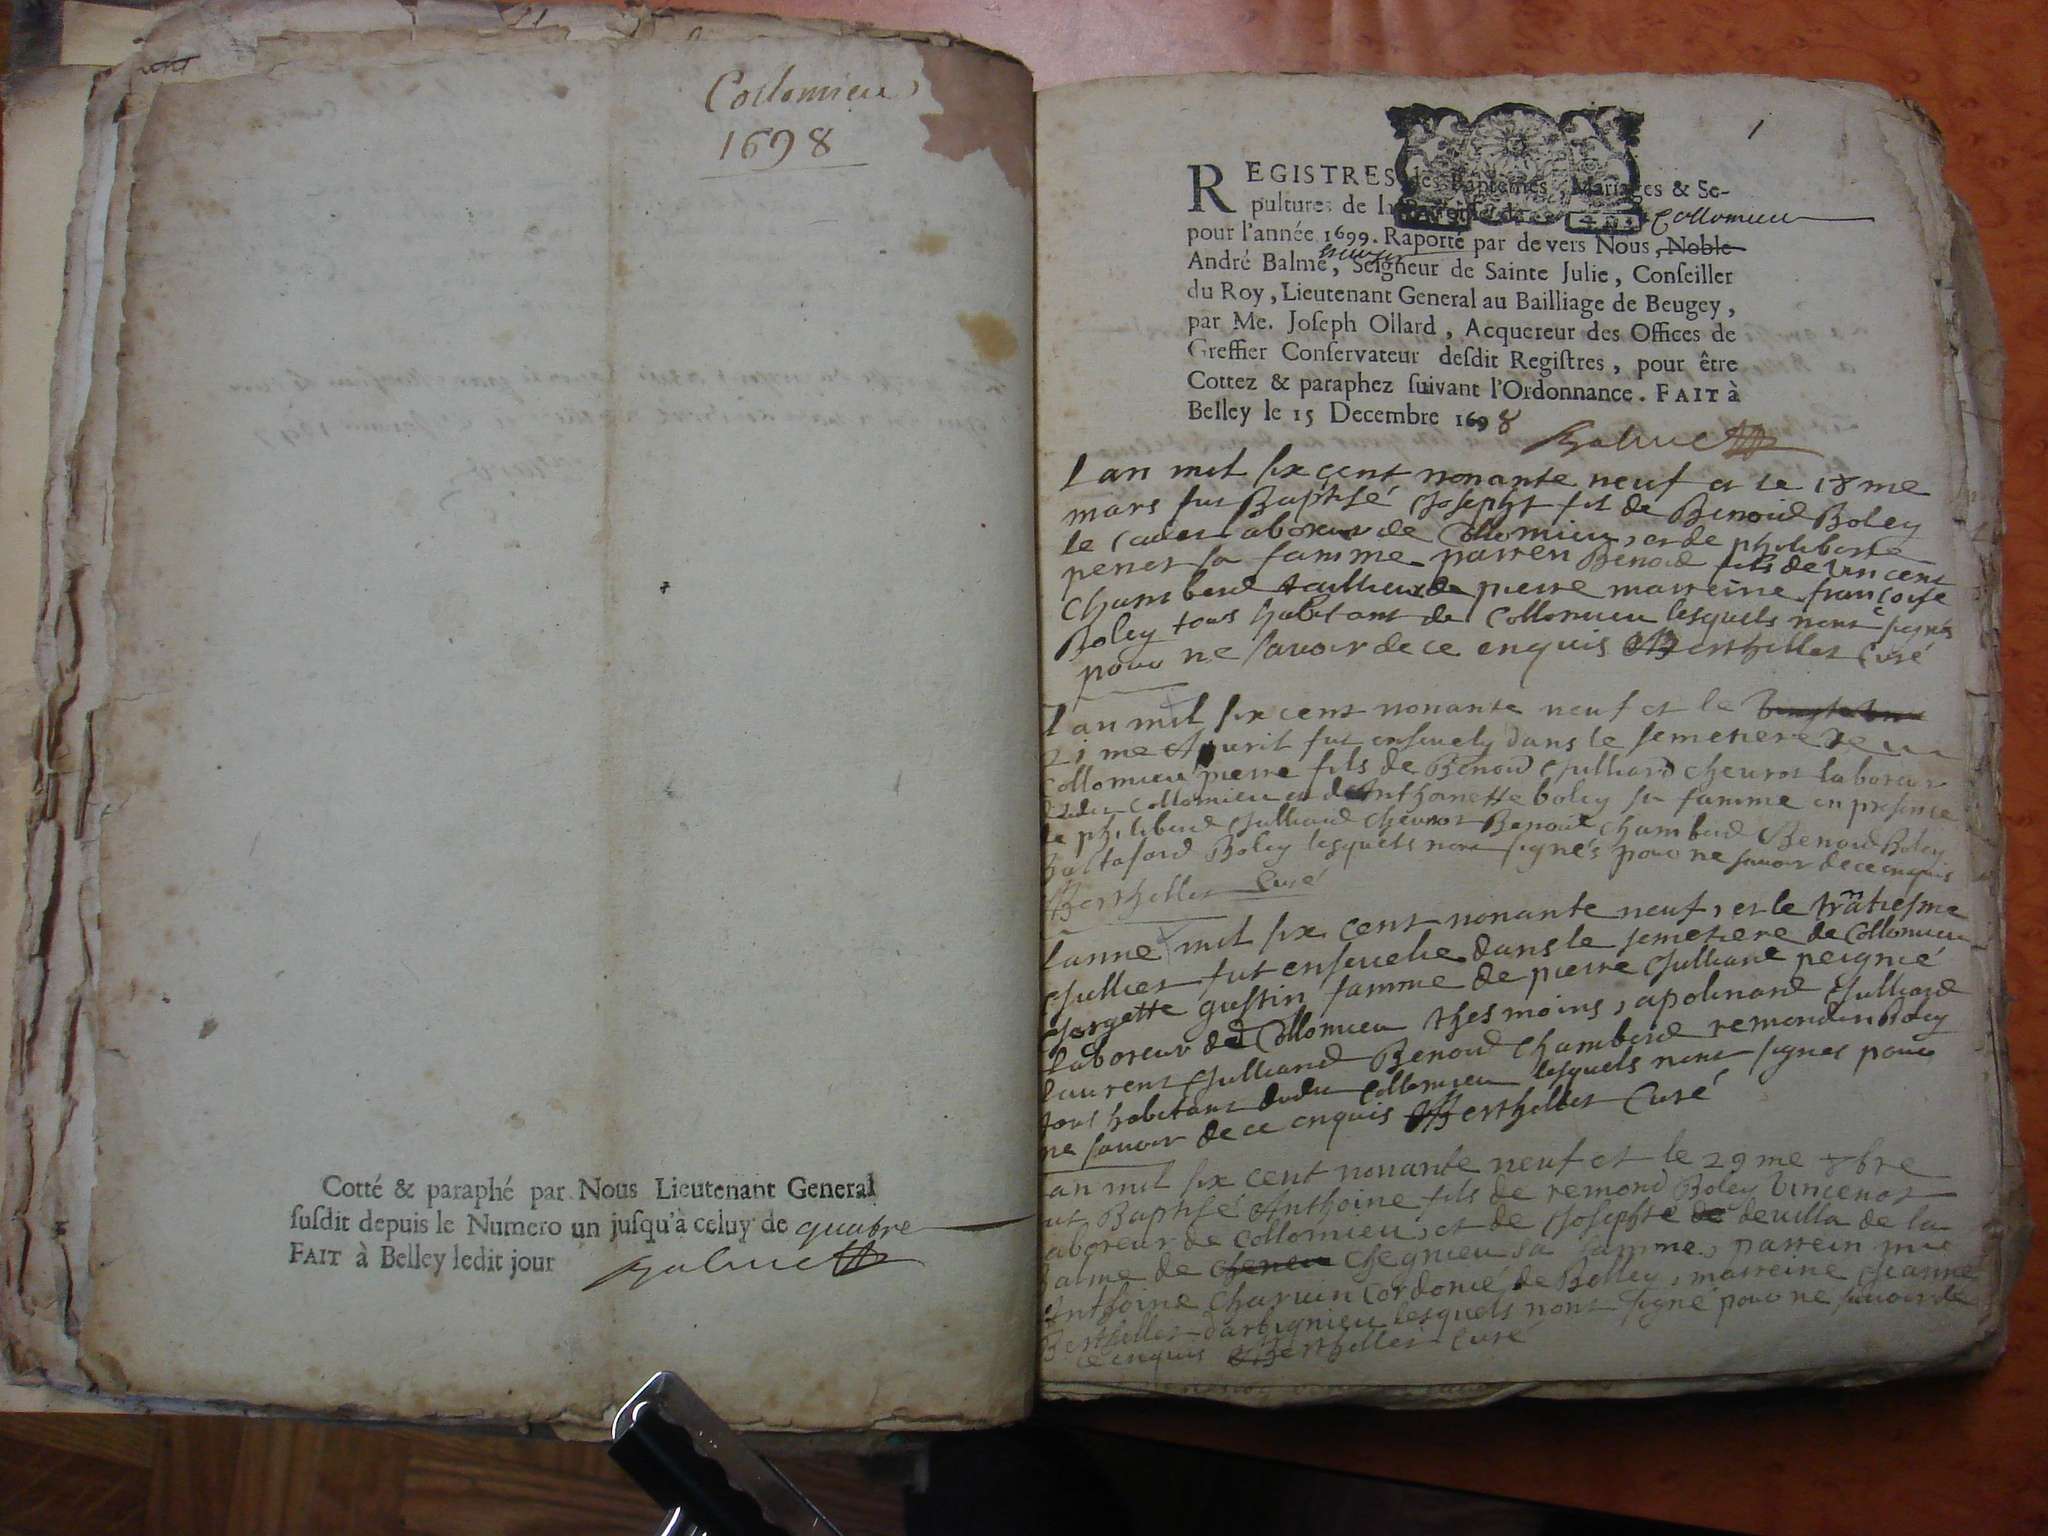 Collomieu
1698
Cotté & paraphé par Nous Lieutenant General
ſuſdit depuis le Numero un juſqu'à celuy de quatre
FAIT à Belley ledit jour
Balme
1
REGISTRES des Baptemes, Mariages & Se-
pultures de la Paroiſſe de Collomieu
pour l'année 1699. Raporté par devers Nous, Noble
André Balme, Seigneur de Sainte Julie, Conſeiller
du Roy, Lieutenant General au Bailliage de Beugey,
par Me. Joſeph Ollard, Acquereur des Offices de
Greffier Conſervateur deſdit Regiſtres, pour être
Cottez & paraphez ſuivant l'Ordonnance. FAIT à
Belley le 15 Decembre 1698
Balme
Lan mil six cent nonante neuf et le 18me
mars fut Baptisé Joseph fil de Benoid Boley
le cadet laboreur de Collomieu, et de philiberte
penet sa famme parren Benoid fils de vincent
Chamberd taillieur de pierre marreine francoise
Boley tous habitant de Collomieu lesquels nont signés
pour ne savoir de ce enquis Berthellet Curé
Lan mil six cent nonante neuf et le
21me Apuril fut ensevely dans le semetiere de
Collomieu pierre fils de Benoid Julliard chevrot laboreur
dudit Collomieu et de Anthoinette boley sa famme en presence
de philiberd Julliard Chevrot Benoid Chamberd Benoid Boley
Baltasard Boley lesquels nont signés pour ne savoir de ce enquis
Berthellet Curé
Lanne mil six cent nonante neuf, et le
Jullier fut ensevelie dans le semetiere de Collomieu
Jorgette gustin famme de pierre Julliard peignié
laboreur de Collomieu thesmoins, apolinard Julliard
laurent Julliard Benoid Chamberd remond Boley
tous habitant dudit Collomieu lesquels nont signes pour
ne savoir de ce enquis Berthellet Curé
Lan mil six cent nonante neuf et le 29me 8bre
fut Baptisé Anthoine fils de remond Boley vincenot
laboreur de Collomieu, et de Josephte devilla de la
balme de chegnieu sa famme, parrein
Anthoine charvin cordonié de Belley, marreine Jeanne
Berthellet darbignieu lesquels nont signé pour ne savoir de
ce enquis Berthellet Curé